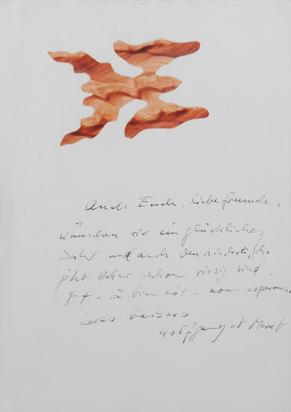 Auch Euch, liebe Freunde,
wünschen wir ein glückliches
Jahr und auch den Kindern, die
jetzt schon riesig sind.
à bientôt - nous espérons.
Les baisers
Wolfgang et